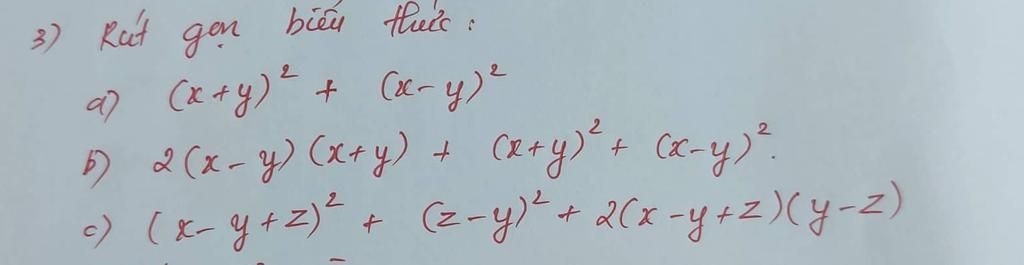 3) Rút gọn biểu thức :
a) (x+y)² + (x-y)²
b) 2(x-y)(x+y) + (x+y)² + (x-y)².
c) (x-y+z)² + (z-y)² + 2(x-y+z)(y-z)